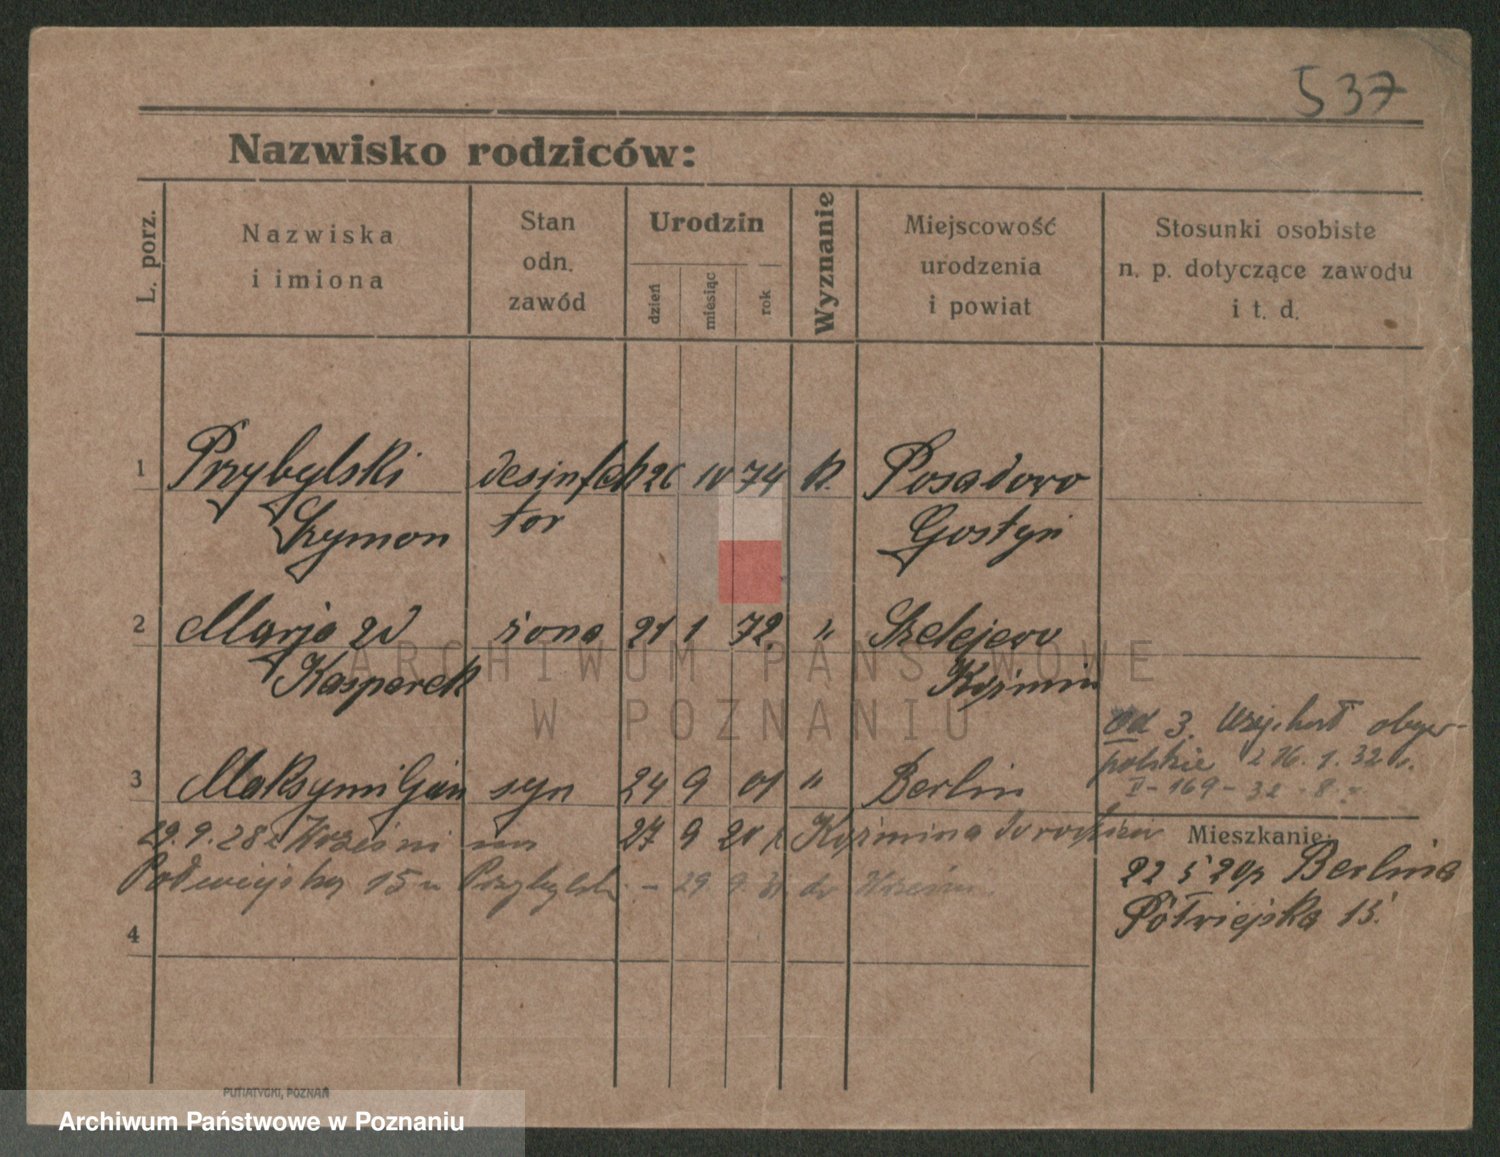 537
Nazwisko rodziców:
L. porz.
Nazwiska
i imiona
Stan
odn.
zawód
Urodzin
dzień
miesiąc
rok
Wyznanie
Miejscowość
urodzenia
i powiat
Stosunki osobiste
n. p. dotyczące zawodu
i t. d.
1 Przybylski desinfek 26 IV 74 k. Posadowo
Szymon tor Gostyń
2 Marja zd żona 21 1 72. " Szelejewo
Kasparek Koźmin
3 Maksymiljan syn 24 9 01 " Berlin
od 3. obyw-
polskie z 16.1.32 r.
II-169-32
29.9.28 z Wrześni 27 9 20 z Koźmina
15 Przybylski - 29. 9. do Wrześni
Mieszkanie:
22 5 20 z Berlina
Półwiejska 15.
4
PUTIATYCKI, POZNAŃ
ARCHIWUM PAŃSTWOWE
W POZNANIU
Archiwum Państwowe w Poznaniu